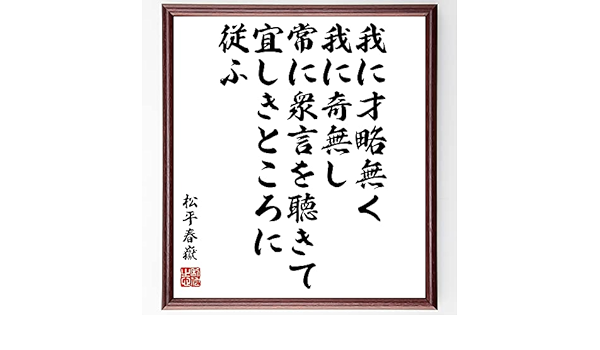 我に才略無く
我に奇無し
常に衆言を聴きて
宜しきところに
従ふ
松平春嶽